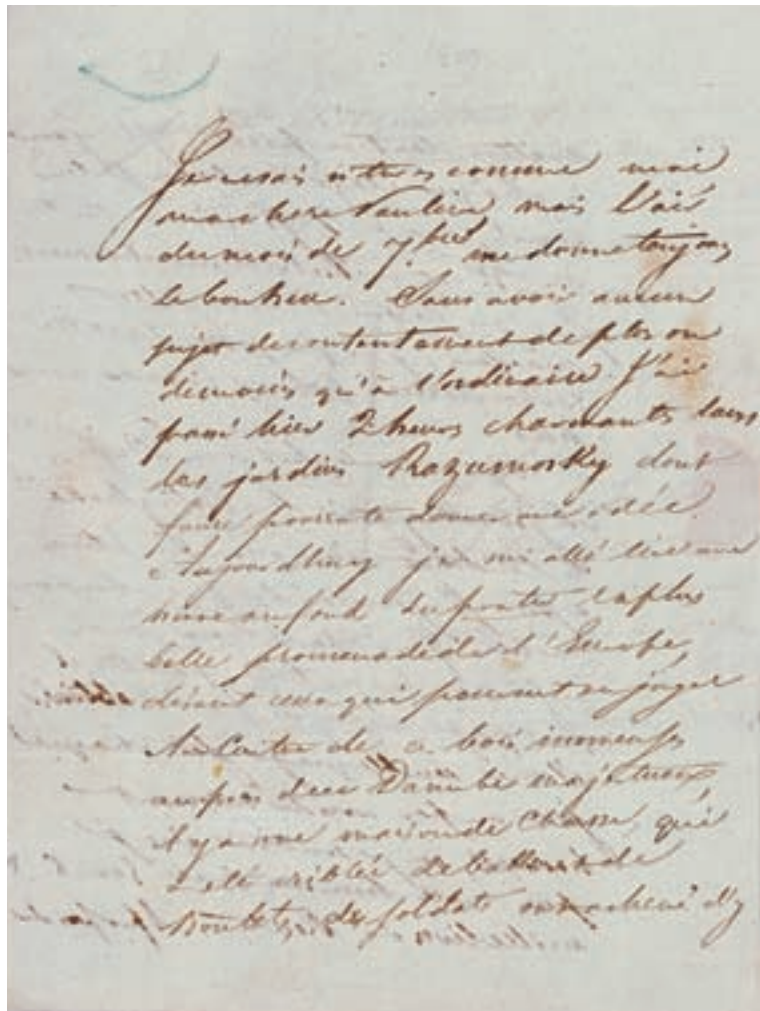 Je ne sais si tu es comme moi
ma chere Pauline, mais l'air
du mois de 7.bre me donne toujours
le bonheur. Sans avoir aucun
sujet de contentement de plus ou
de moins qu'à l'ordinaire J'ai
passé hier 2 heures charmantes dans
les jardins Razumosky dont
donner une idée.
Aujourdhuy je suis allé lire une
heure au fond du la plus
belle promenade de l'Europe,
disent ceux qui peuvent en juger
Au Centre de ce bois immense
auprès du Danube majestueux,
il y a une maison de Chasse qui
a été criblée de et de
boulets de soldats on achevé d'y